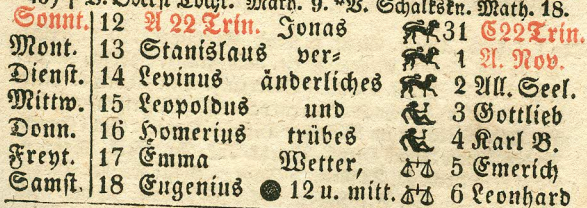 Math. 9. V. Schalkskn. Math. 18.
Sonnt. 12 A 22 Trin. Jonas 31 E22Trin.
Mont. 13 Stanislaus ver- 1 A. Nov.
Dienst. 14 Levinus änderliches 2 All. Seel.
Mittw. 15 Leopoldus und 3 Gottlieb
Donn. 16 Homerius trübes 4 Karl B.
Freyt. 17 Emma Wetter, 5 Emerich
Samst. 18 Eugenius ● 12 u. mitt. 6 Leonhard